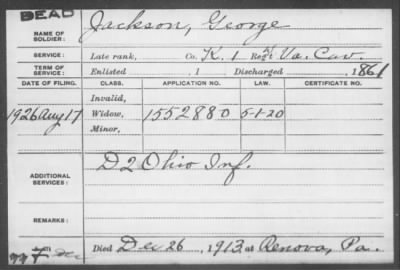 DEAD
NAME OF SOLDIER: Jackson, George
SERVICE: Late rank, Co. K. 1 Reg't Va. Cav.
TERM OF SERVICE: Enlisted , 1 Discharged , 1861
DATE OF FILING. CLASS. APPLICATION NO. LAW. CERTIFICATE NO.
Invalid,
1926 Aug 17 Widow, 1552880 5-1-20
Minor,
ADDITIONAL SERVICES: D 2 Ohio Inf.
REMARKS:
Died Dec 26, 1913, at Renova, Pa.